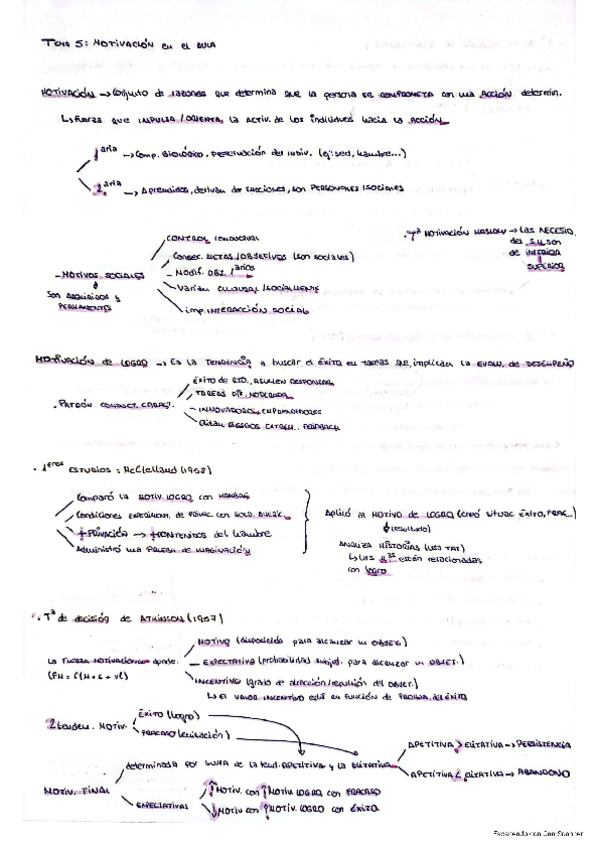 TEMA 5: MOTIVACIÓN en el AULA
MOTIVACIÓN → Conjunto de razones que determina que la persona se COMPROMETA con una ACCIÓN determin.
↳ Fuerza que IMPULSA/ORIENTA, la activ. de los individuos hacia la ACCIÓN
1aria → Comp. BIOLÓGICO. del indiv. (ej: sed, hambre...)
2aria → Aprendidos, derivan de emociones, son PERSONALES/SOCIALES
- MOTIVOS SOCIALES
SON ADQUIRIDOS y PERMANENTES
CONTROL EMOCIONAL
Consec. METAS/OBJETIVOS (son sociales)
Modif. OBJ. 1arios
Varían CULTURAL/SOCIALMENTE
imp. INTERACCIÓN SOCIAL
. Tª MOTIVACIÓN MASLOW → LAS NECESID.
del S.H. son
de INFERIOR
SUPERIOR
MOTIVACIÓN de LOGRO → Es la TENDENCIA a buscar el ÉXITO en tareas que implican la EVALU. de DESEMPEÑO
. PATRÓN CONDUCT. CARACT.
ÉXITO de RTO, ASUMEN RESPONSAB.
TAREAS DIF. MODERADA
INNOVADORES,
RIESGOS EXTREM., FEEDBACK
. 1eros ESTUDIOS: McClelland (1958)
Comparó la MOTIV. LOGRO con HAMBRE
Condiciones EXPERIMENT. de PRIVAC. con
+ PRIVACIÓN → + CONTENIDOS del hambre
Administró una PRUEBA de IMAGINACIÓN
Aplicó al MOTIVO de LOGRO (creó situac. ÉXITO, FRAC...)
(resultado)
ANALIZA HISTORIAS (USA TAT)
↳ LAS Hªs están relacionadas
con LOGRO
. Tª de decisión de ATKINSON (1957)
LA FUERZA MOTIVACIONAL depende:
(FM = f(M + E + VI)
MOTIVO (disposición para alcanzar un OBJET.)
EXPECTATIVA (probabilidad subjet. para alcanzar un OBJET.)
INCENTIVO (grado de atracción/repulsión del OBJET.)
↳ el VALOR INCENTIVO está en función de PROBAB. del ÉXITO
2 tenden. MOTIV.
ÉXITO (logro)
FRACASO (evitación)
MOTIV. FINAL
determinada por SUMA de la tend. APETITIVA y la EVITATIVA
APETITIVA > EVITATIVA → PERSISTENCIA
APETITIVA < EVITATIVA → ABANDONO
EXPECTATIVAS
↑ MOTIV. con ↑ MOTIV LOGRO con FRACASO
↓ MOTIV con ↑ MOTIV. LOGRO con ÉXITO
Escaneado con CamScanner